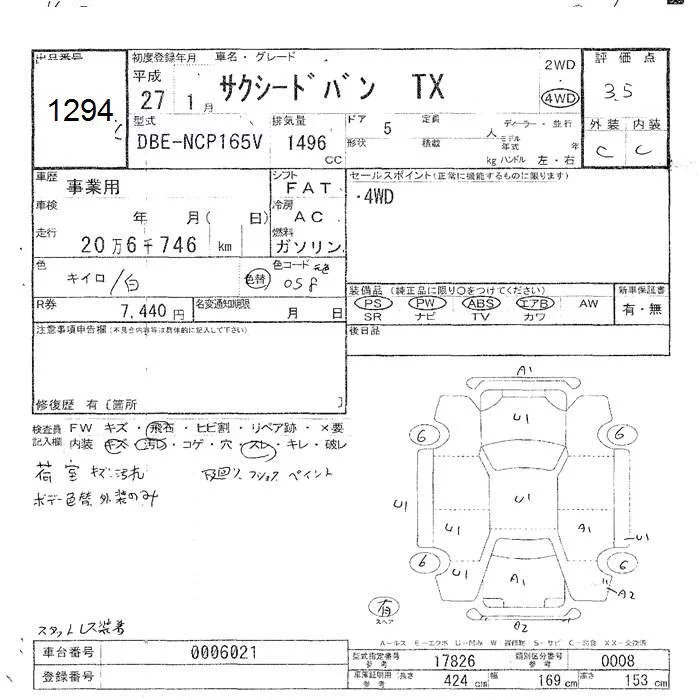 初度登録年月 車名・グレード
評価点
平成 27年 1月
サクシードバン TX
2WD
4WD
3.5
1294
型式
DBE-NCP165V
排気量
1496 CC
ドア 5
定員 人
ディーラー・並行
モデル年式 年
形状
積載 kg
ハンドル 左・右
外装 内装
C C
車歴 事業用
シフト FAT
セールスポイント(正常に機能するものに限ります)
・4WD
車検 年 月( 日)
冷房 AC
走行 20万6千746 km
燃料 ガソリン
色 キイロ/白
色替
色コード 元色
058
R券 7,440円
名変通知期限 月 日
装備品 (純正品に限り○をつけてください)
PS PW ABS エアB AW
SR ナビ TV カワ
新車保証書
有・無
後日品
注意事項申告欄(不具合内容等は具体的に記入して下さい)
修復歴 有〔箇所 〕
検査員記入欄
FW キズ・飛石・ヒビ割・リペア跡・×要
内装 キズ・汚れ・コゲ・穴・スレ・キレ・破レ
荷室キズ汚れ
下回り、フロシャス ペイント
ボデー色替、外装のみ
A1
U1
6 6
U1
U1 U1
A1
U1
6 6
U1
A1
A2
有
スペア
A2
スタットレス装着
A-ルス E-エクボ U-凹み W 補修跡 S-サビ C-腐食 XX-交換済
車台番号 0006021
登録番号
型式指定番号 参考 17826
類別区分番号 参考 0008
車庫証明用 参考 長さ 424 cm 幅 169 cm 高さ 153 cm